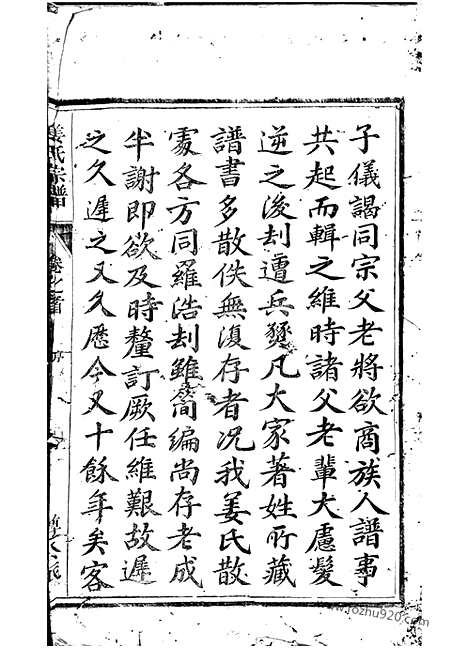 子儀謁同宗父老將欲商族人譜事
共起而輯之維時諸父老輩大慮髮
逆之後刦遭兵燹凡大家著姓所藏
譜書多散佚無復存者況我姜氏散
處各方同羅浩刦雖簡編尚存老成
半謝即欲及時釐訂厥任維艱故遲
之久遲之又久歷今又十餘年矣客
姜氏宗譜
卷之首
序
www.jiozhu920.com